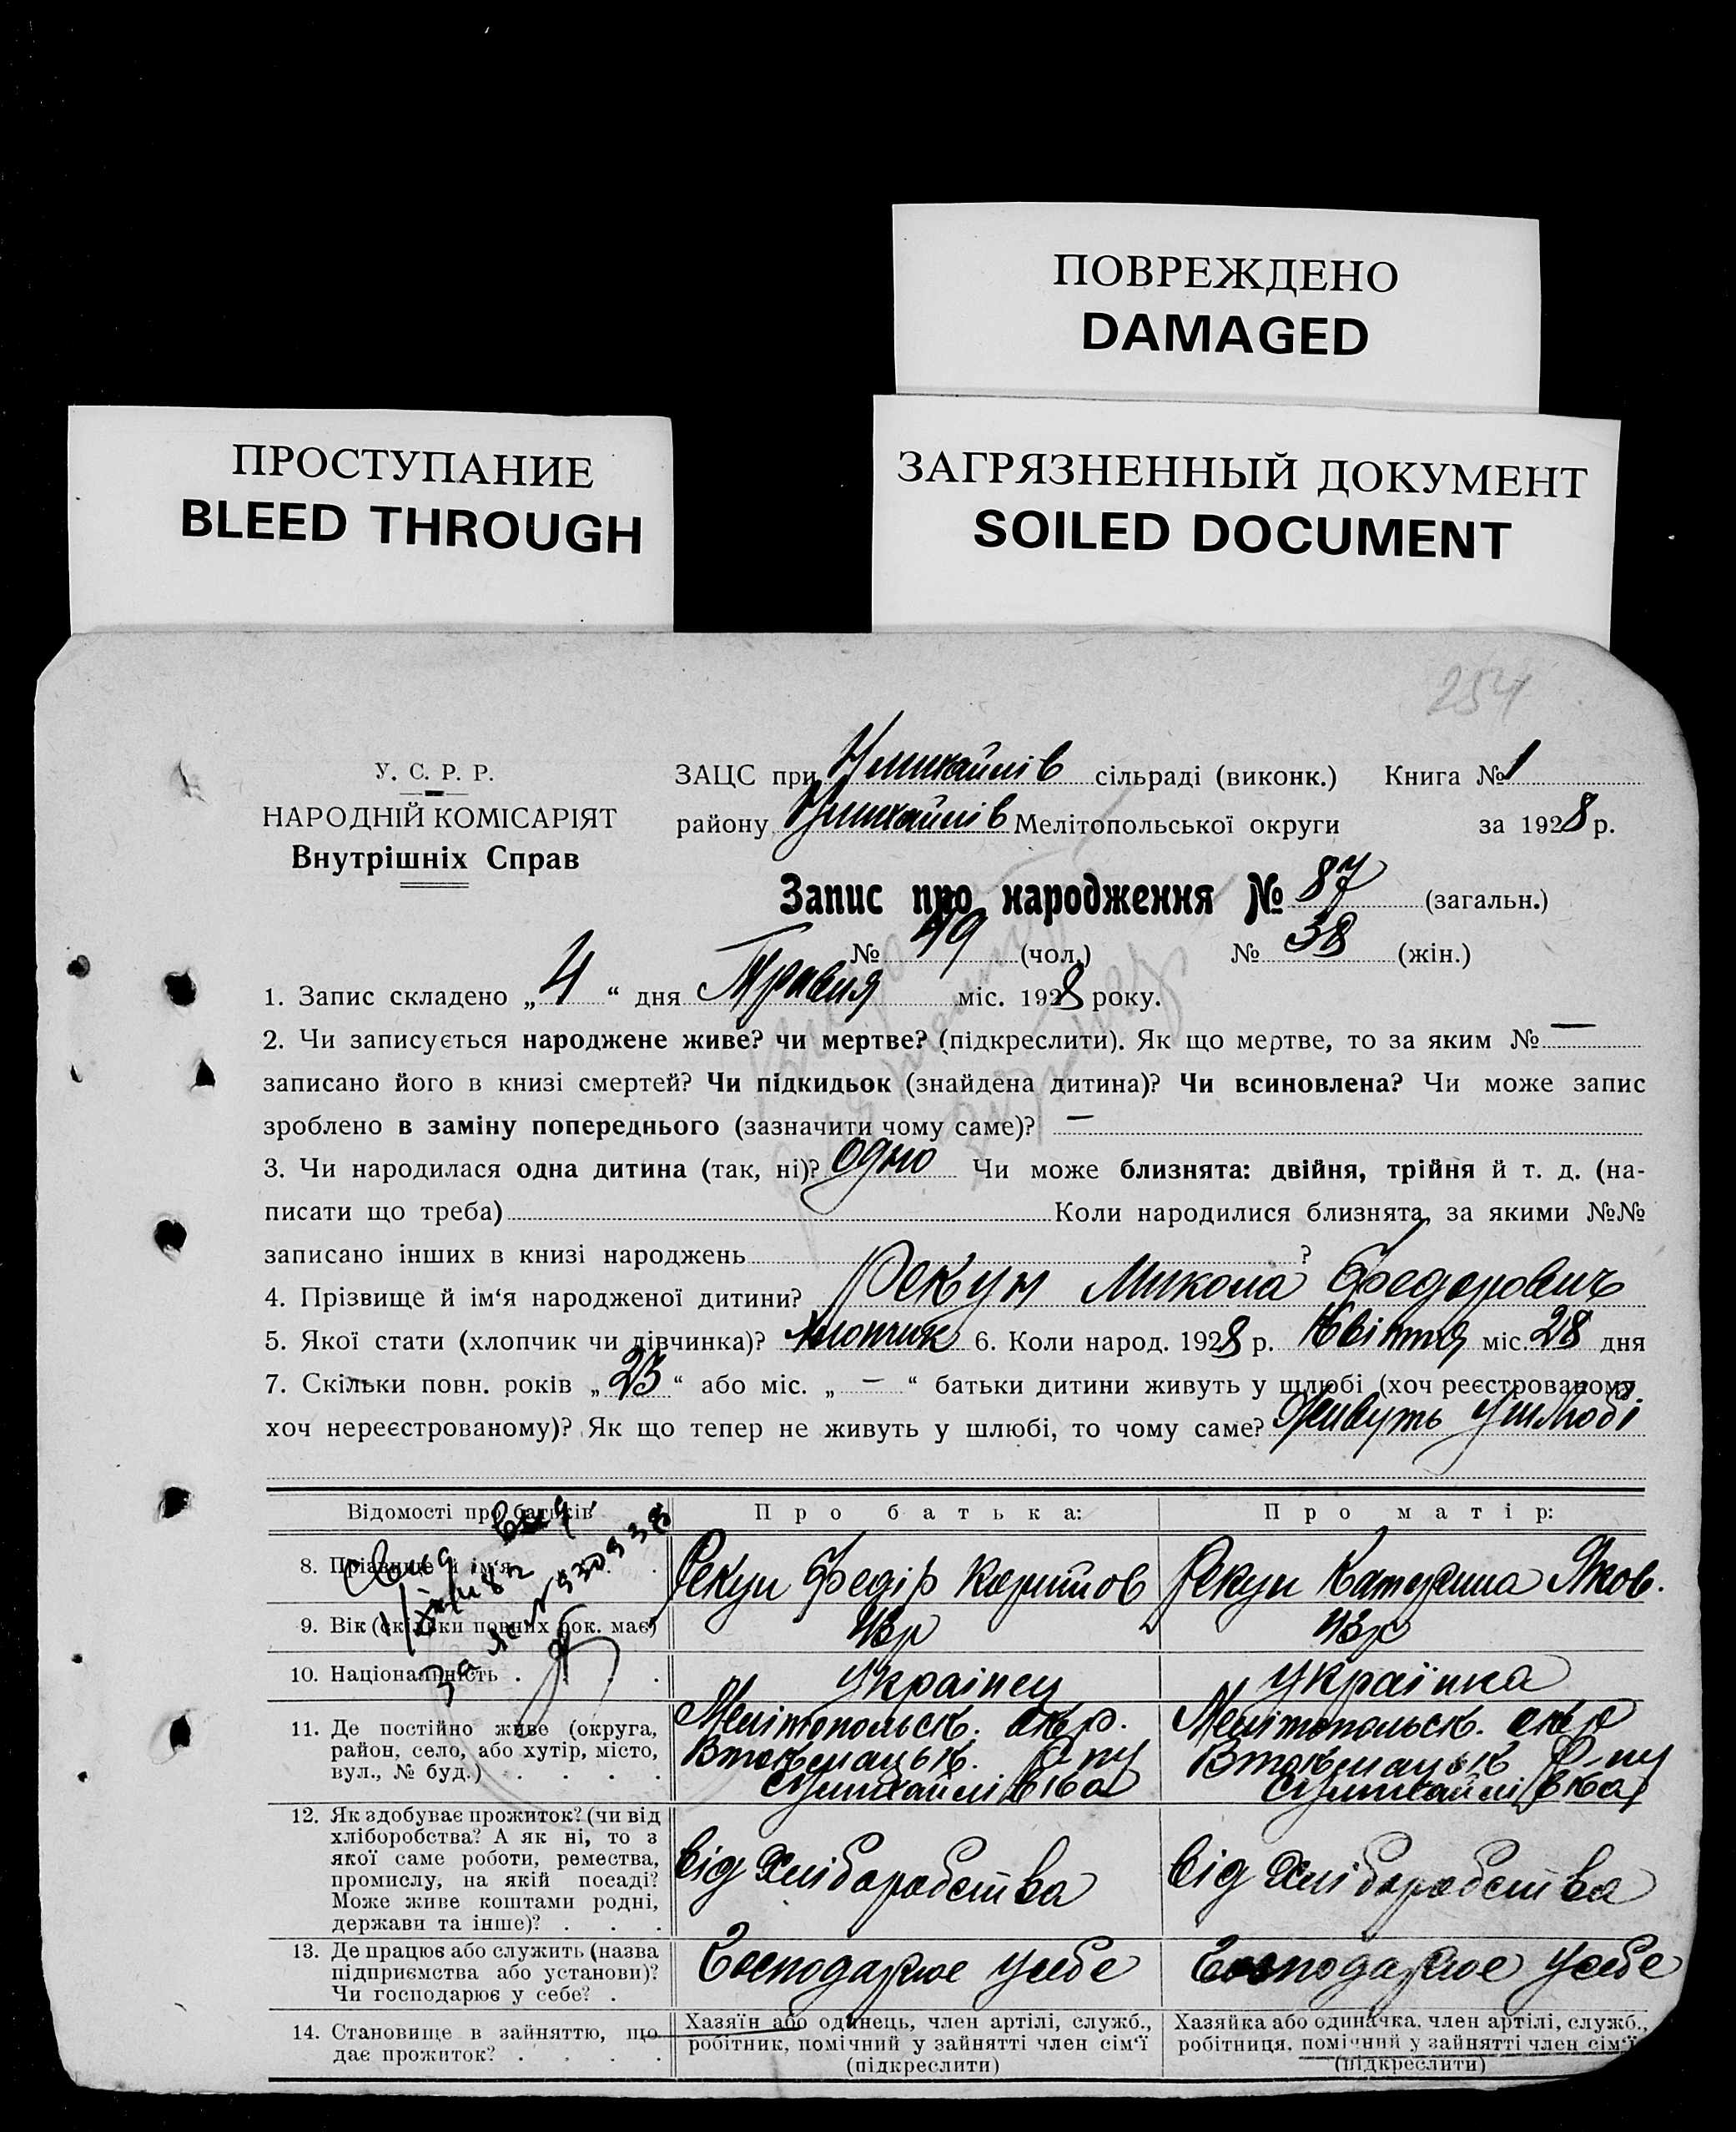 ПОВРЕЖДЕНО
DAMAGED
ПРОСТУПАНИЕ
BLEED THROUGH
ЗАГРЯЗНЕННЫЙ ДОКУМЕНТ
SOILED DOCUMENT
254
У. С. Р. Р.
НАРОДНІЙ КОМІСАРІЯТ
Внутрішніх Справ
ЗАЦС при сільраді (виконк.) Книга № 1
району Мелітопольської округи за 1928 р.
Запис про народження № 87 (загальн.)
№ 49 (чол.) № 38 (жін.)
1. Запис складено „4“ дня Травня міс. 1928 року.
2. Чи записується народжене живе? чи мертве? (підкреслити). Як що мертве, то за яким № —
записано його в книзі смертей? Чи підкидьок (знайдена дитина)? Чи всиновлена? Чи може запис
зроблено в заміну попереднього (зазначити чому саме)? —
3. Чи народилася одна дитина (так, ні)? одно Чи може близнята: двійня, трійня й т. д. (на-
писати що треба) Коли народилися близнята, за якими №№
записано інших в книзі народжень ?
4. Прізвище й ім‘я народженої дитини? Рекун Микола Федорович
5. Якої стати (хлопчик чи дівчинка)? Хлопчик 6. Коли народ. 1928 р. Квітня міс. 28 дня
7. Скільки повн. років „23“ або міс. „—“ батьки дитини живуть у шлюбі (хоч реєстрованому,
хоч нереєстрованому)? Як що тепер не живуть у шлюбі, то чому саме? Живуть ушлюбі
Відомості про батьків Про батька: Про матір:
8. Прізвище й ім‘я Рекун Федір Рекун Катерина Яков.
9. Вік (скільки повних рок. має) 43р 43р
10. Національність Українец Українка
11. Де постійно живе (округа,
район, село, або хутір, місто,
вул., № буд.)
Мелітопольск. окр. Мелітопольск. окр
12. Як здобуває прожиток? (чи від
хліборобства? А як ні, то з
якої саме роботи, ремества,
промислу, на якій посаді?
Може живе коштами родні,
держави та інше)?
від Хлібаробства від Хлібаробства
13. Де працює або служить (назва
підприємства або установи)?
Чи господарює у себе?
Господарює усебе Господарює усебе
14. Становище в зайняттю, що
дає прожиток?
Хазяїн або одинець, член артілі, служб.,
робітник, помічний у зайнятті член сім‘ї
(підкреслити)
Хазяйка або одиначка, член артілі, служб.,
робітниця, помічний у зайнятті член сім‘ї
(підкреслити)